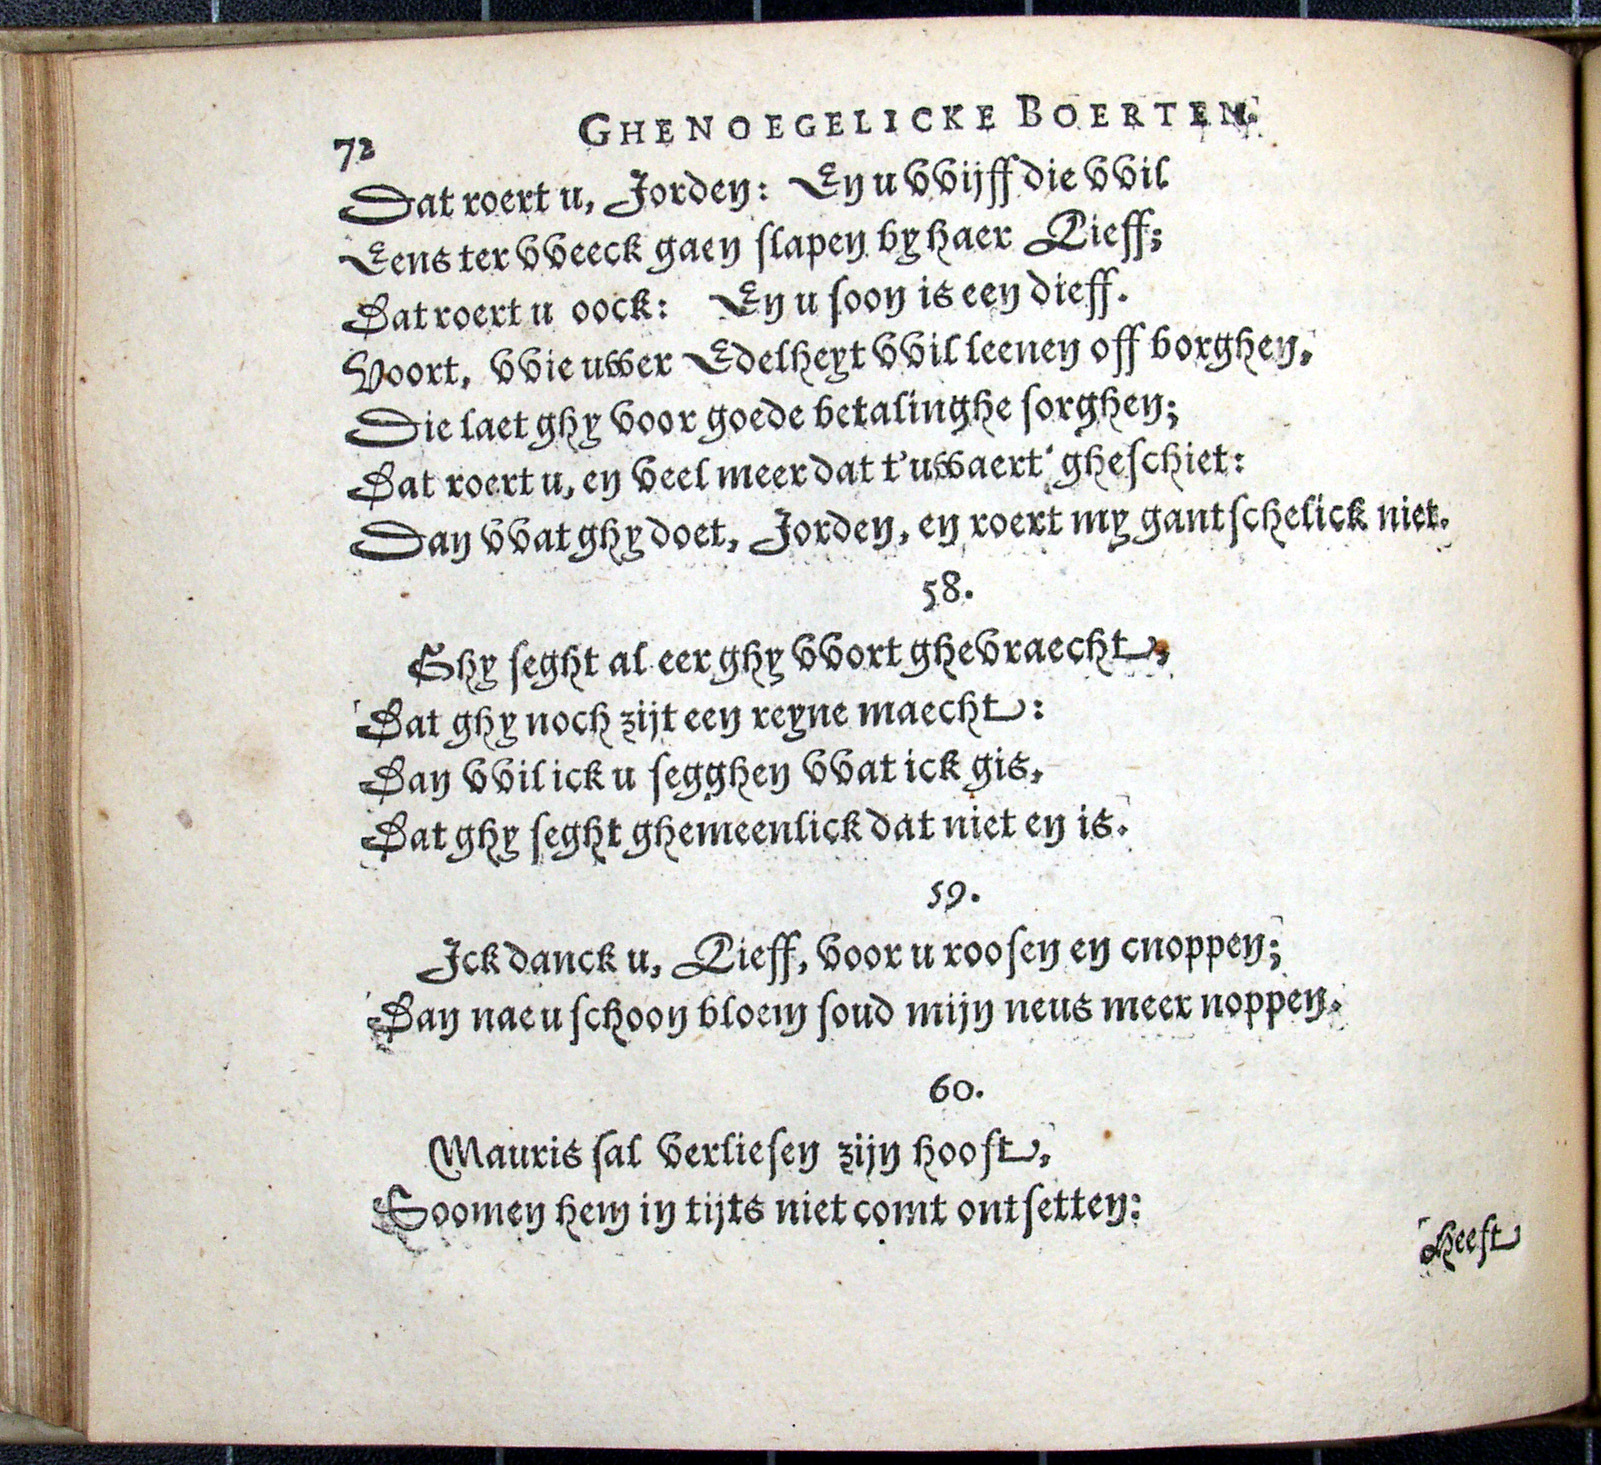 72 GHENOEGELICKE BOERTEN.
Dat roert u, Jorden: En u vvijff die vvil
Eens ter vveeck gaen slapen by haer Lieff;
Dat roert u oock: En u soon is een dieff.
Voort, vvie uwer Edelheyt vvil leenen off borghen,
Die laet ghy voor goede betalinghe sorghen;
Dat roert u, en veel meer dat t'uwaert gheschiet:
Dan vvat ghy doet, Jorden, en roert my gantschelick niet.
58.
Ghy seght al eer ghy vvort ghevraecht,
Dat ghy noch zijt een reyne maecht:
Dan vvil ick u segghen vvat ick gis,
Dat ghy seght ghemeenlick dat niet en is.
59.
Ick danck u, Lieff, voor u roosen en cnoppen;
Dan nae u schoon bloem soud mijn neus meer noppen.
60.
Mauris sal verliesen zijn hooft,
Soomen hem in tijts niet comt ontsetten:
Heeft